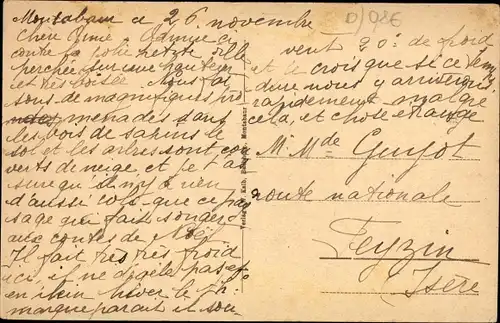 Montabaur ce 26 novembre
D/08E
Chère Amie. Admirez ci
contre la jolie petite ville
perchée sur une hauteur
et très boisée. Nous fai
sons de magnifiques pro
menades dans
les bois de sapins le
sol et les arbres sont cou
verts de neige, et je t'as
sure qu'il n'y a rien
d'aussi joli que ce pay
sage qui fait songer
aux contes de Noël
Il fait très très froid
ici, il ne dégèle pas et
en plein hiver le th
marque paraît il sou
vent 20° de froid
et je crois que si ce temps
dure nous y arriverons
rapidement malgré
cela, et chose étrange
Verlag Kath. Montabaur
M. Mde Guyot
route nationale
Feyzin
Isère